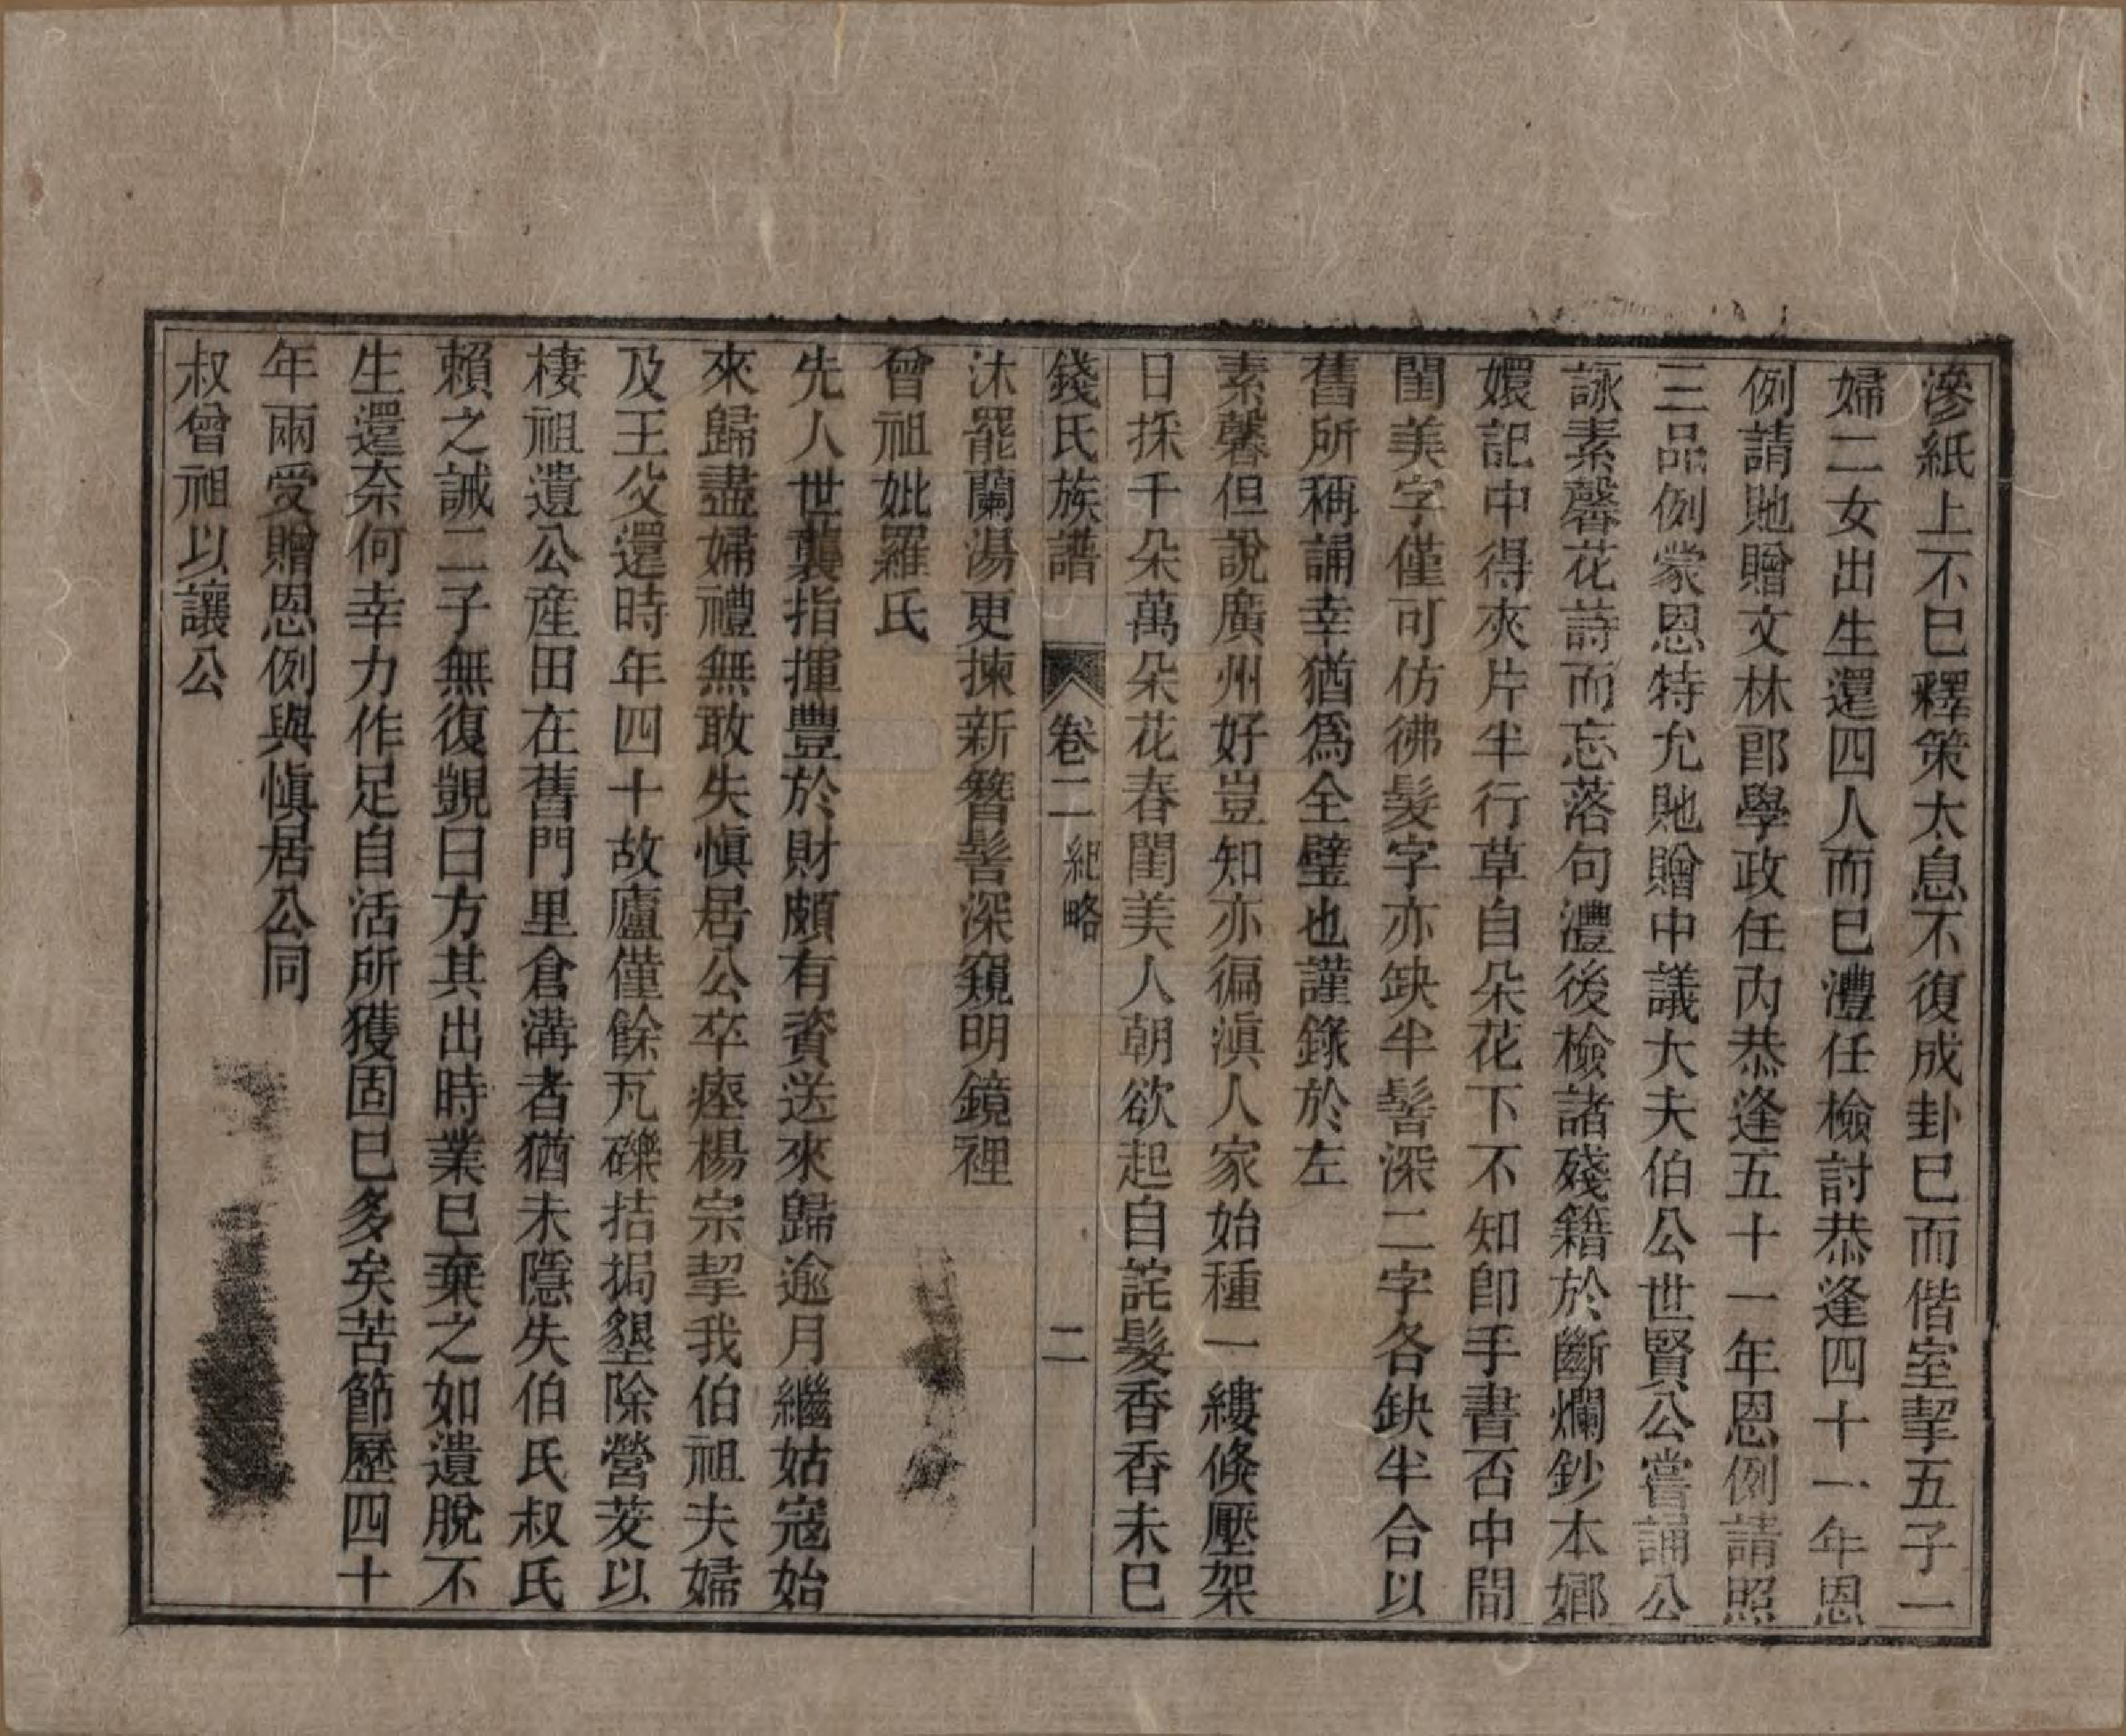 滲紙上不巳釋策太息不復成卦巳而偕室挈五子一
婦二女出生還四人而巳澧任檢討恭逢四十一年恩
例請貤贈文林郎學政任内恭逢五十一年恩例請照
三品例蒙恩特允貤贈中議大夫伯公世賢公嘗誦公
詠素馨花詩而忘落句澧後檢諸殘籍於斷爛鈔本嫏
嬛記中得夾片半行草自朵花下不知卽手書否中間
閨美字僅可仿彿髮字亦缺半髻深二字各缺半合以
舊所稱誦幸猶爲全璧也謹錄於左
素馨但說廣州好豈知亦徧滇人家始種一縷倏壓架
日採千朵萬朵花春閨美人朝欲起自詫髮香香未巳
錢氏族譜 卷二 紀略 二
沐罷蘭湯更揀新簪髻深窺明鏡裡
曾祖妣羅氏
先人世襲指揮豐於財頗有資送來歸逾月繼姑寇始
來歸盡婦禮無敢失愼居公卒瘞楊宗挈我伯祖夫婦
及王父還時年四十故廬僅餘瓦礫拮挶墾除營茇以
棲祖遺公産田在舊門里倉溝者猶未隱失伯氏叔氏
賴之誡二子無復覬曰方其出時業巳棄之如遺脫不
生還奈何幸力作足自活所獲固巳多矣苦節歷四十
年兩受贈恩例與愼居公同
叔曾祖以讓公